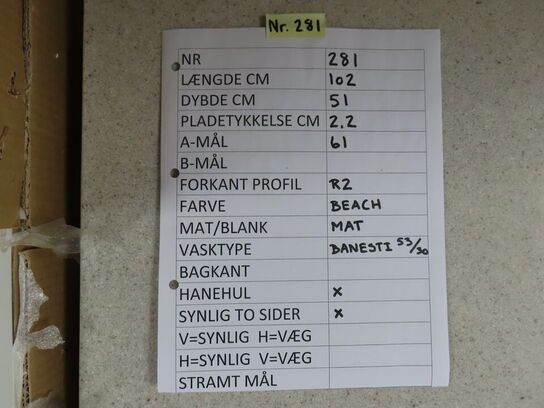 Nr. 281
NR 281
LÆNGDE CM 102
DYBDE CM 51
PLADETYKKELSE CM 2,2
A-MÅL 61
B-MÅL
FORKANT PROFIL R2
FARVE BEACH
MAT/BLANK MAT
VASKTYPE DANESTI 53/30
BAGKANT
HANEHUL x
SYNLIG TO SIDER x
V=SYNLIG H=VÆG
H=SYNLIG V=VÆG
STRAMT MÅL